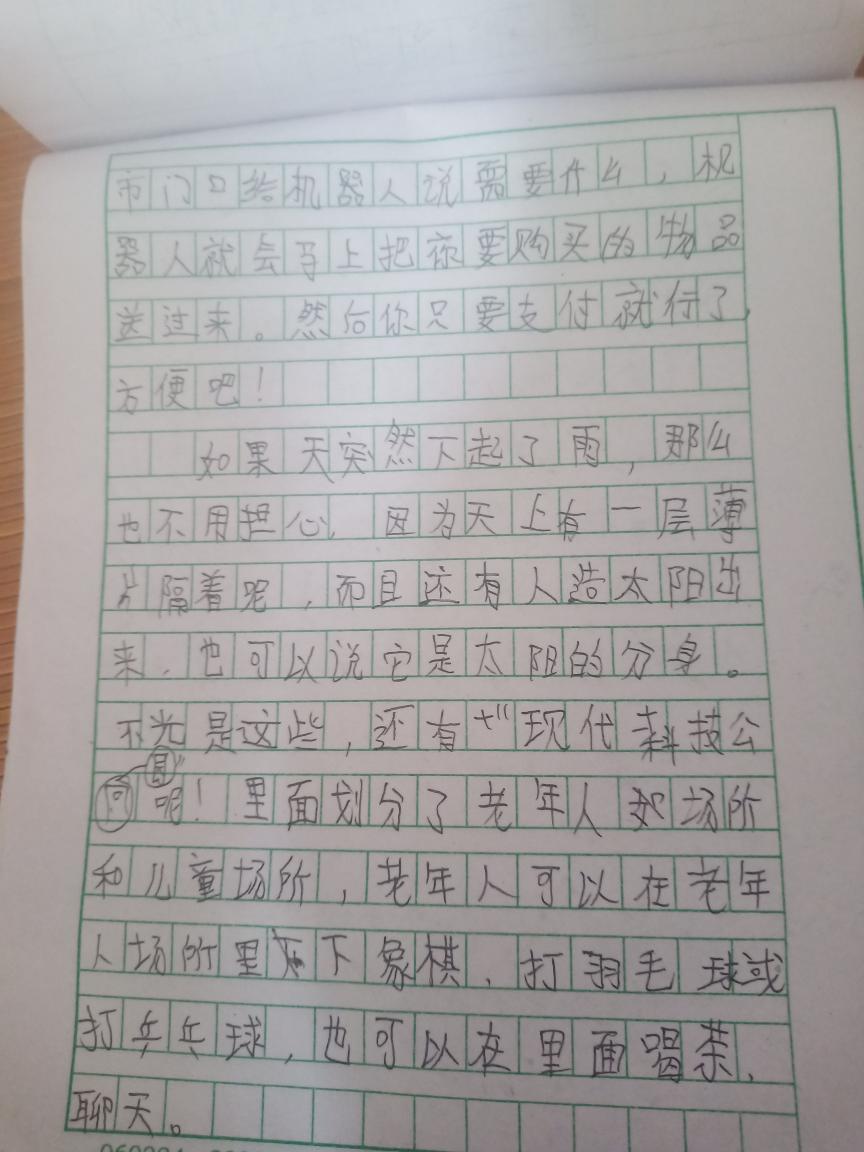 市门口给机器人说需要什么，机
器人就会马上把你要购买的物品
送过来。然后你只要支付就行了，
方便吧！
如果天突然下起了雨，那么
也不用担心，因为天上有一层薄
片隔着呢，而且还有人造太阳出
来，也可以说它是太阳的分身。
不光是这些，还有“现代科技公
园”呢！里面划分了老年人场所
和儿童场所，老年人可以在老年
人场所里下象棋、打羽毛球或
打乒乓球，也可以在里面喝茶、
聊天。